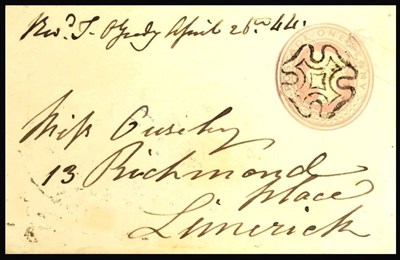 Revd. T. O'Grady April 26th 44.
ONE
Miss
13 Richmond
place
Limerick